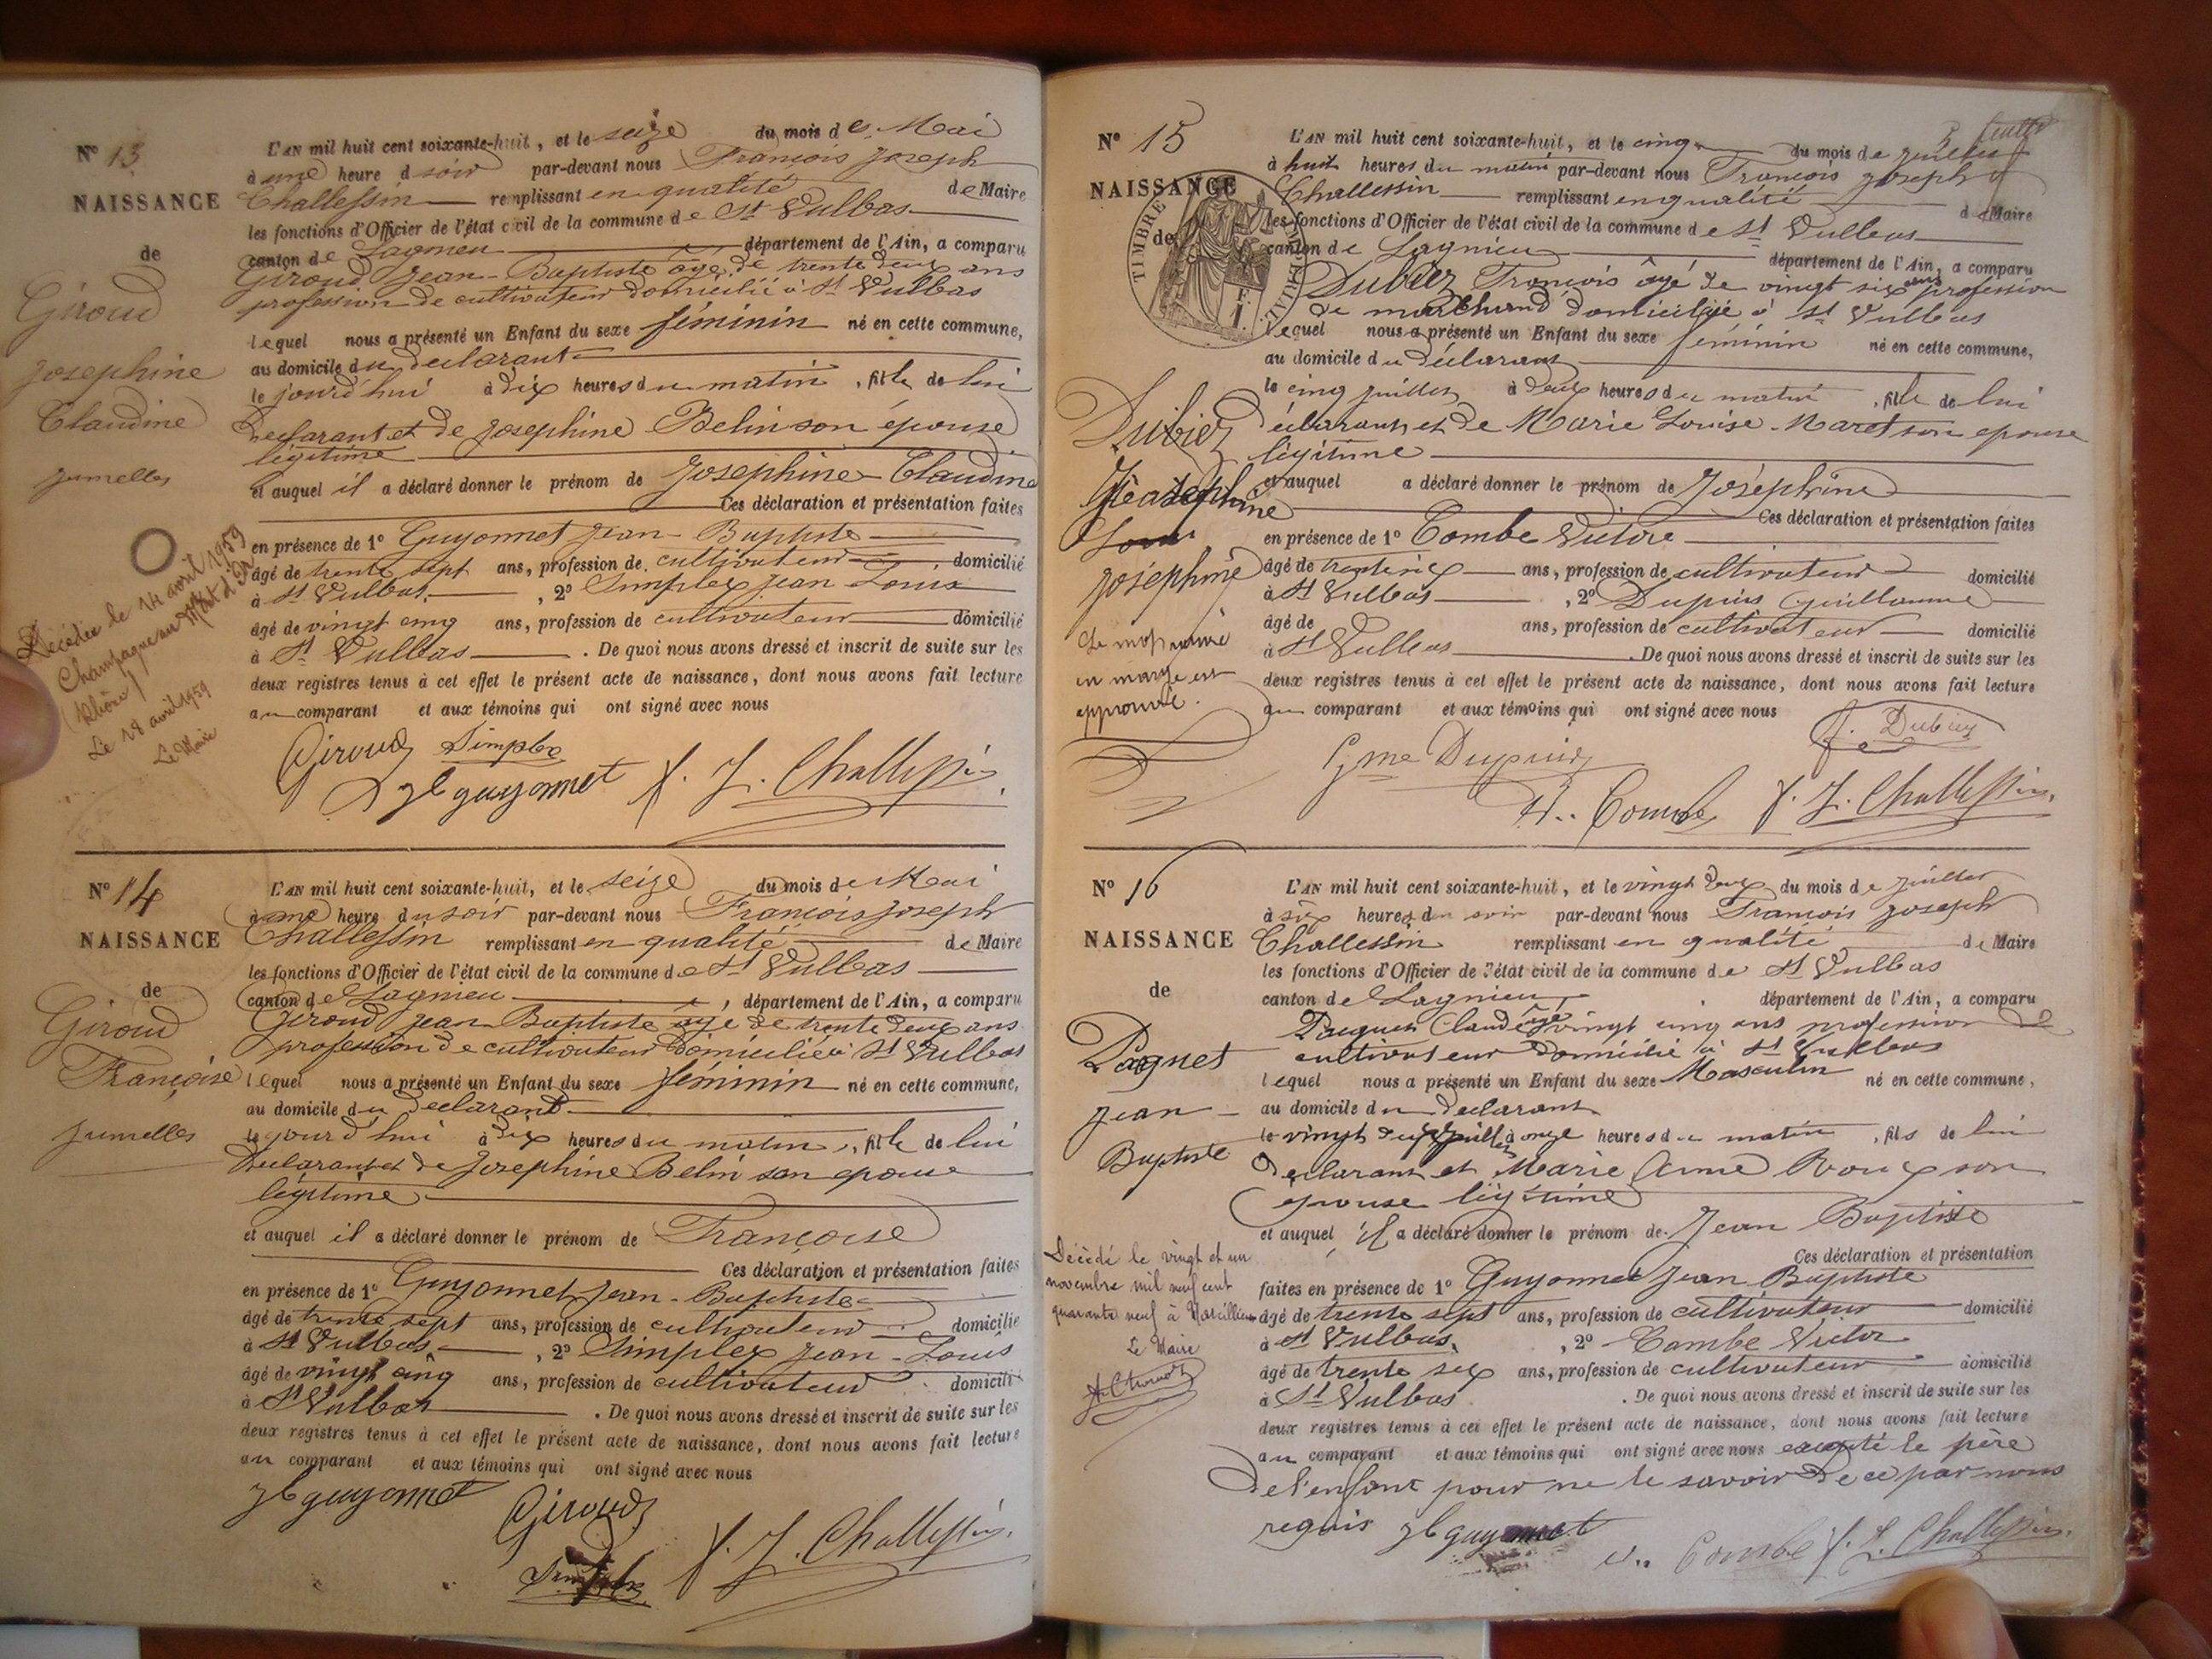 N° 13
NAISSANCE
de
Giroud
Josephine
Claudine
jumelles
Décédée le 14 avril 1959
Champagne au Mont d'Or
(Rhône)
Le 18 avril 1959
Le Maire
L'AN mil huit cent soixante-huit, et le seize du mois de Mai
à une heure d soir par-devant nous François Joseph
Challessin remplissant en qualité de Maire
les fonctions d'Officier de l'état civil de la commune de St Vulbas
canton de Lagnieu département de l'Ain, a comparu
Giroud Jean-Baptiste âgé de trente deux ans
profession de cultivateur domicilié à St Vulbas
lequel nous a présenté un Enfant du sexe féminin né en cette commune,
au domicile du declarant
le jourd'hui à dix heures du matin, fille de lui
declarant et de Josephine Belin son épouse
légitime
et auquel il a déclaré donner le prénom de Josephine Claudine
Ces déclaration et présentation faites
en présence de 1° Guyonnet Jean-Baptiste
âgé de trente sept ans, profession de cultivateur domicilié
à St Vulbas, 2° Simplex Jean-Louis
âgé de vingt cinq ans, profession de cultivateur domicilié
à St Vulbas. De quoi nous avons dressé et inscrit de suite sur les
deux registres tenus à cet effet le présent acte de naissance, dont nous avons fait lecture
au comparant et aux témoins qui ont signé avec nous
Giroud Simplex
jb guyonnet f. J. Challessin
N° 14
NAISSANCE
de
Giroud
Françoise
jumelles
L'AN mil huit cent soixante-huit, et le seize du mois de Mai
à une heure du soir par-devant nous François Joseph
Challessin remplissant en qualité de Maire
les fonctions d'Officier de l'état civil de la commune de St Vulbas
canton de Lagnieu, département de l'Ain, a comparu
Giroud Jean Baptiste âgé de trente deux ans
profession de cultivateur domicilié à St Vulbas
lequel nous a présenté un Enfant du sexe féminin né en cette commune,
au domicile du declarant
le jourd'hui à dix heures du matin, fille de lui
declarant et de Josephine Belin son epouse
légitime
et auquel il a déclaré donner le prénom de Françoise
Ces déclaration et présentation faites
en présence de 1° Guyonnet Jean-Baptiste
âgé de trente sept ans, profession de cultivateur domicilié
à St Vulbas, 2° Simplex Jean-Louis
âgé de vingt cinq ans, profession de cultivateur domicilié
à St Vulbas. De quoi nous avons dressé et inscrit de suite sur les
deux registres tenus à cet effet le présent acte de naissance, dont nous avons fait lecture
au comparant et aux témoins qui ont signé avec nous
jb guyonnet Giroud
Simplex f. J. Challessin
N° 15
NAISSANCE
de
TIMBRE IMPÉRIAL
F.
1
Dubiez
Josephine
joséphine
Le mot
en marge est
approuvé.
L'AN mil huit cent soixante-huit, et le cinq du mois de juillet
à huit heures du matin par-devant nous François joseph
Challessin remplissant en qualité de Maire
les fonctions d'Officier de l'état civil de la commune de St Vulbas
canton de Lagnieu département de l'Ain, a comparu
Dubiez François âgé de vingt six ans profession
de marchand domicilié à St Vulbas
lequel nous a présenté un Enfant du sexe féminin né en cette commune,
au domicile du déclarant
le cinq juillet à deux heures du matin, fille de lui
déclarant et de Marie Louise Maret son epouse
légitime
et auquel a déclaré donner le prénom de Joséphine
Ces déclaration et présentation faites
en présence de 1° Combe Victor
âgé de trente six ans, profession de cultivateur domicilié
à St Vulbas, 2° Dupuis Guillaume
âgé de ans, profession de cultivateur domicilié
à St Vulbas. De quoi nous avons dressé et inscrit de suite sur les
deux registres tenus à cet effet le présent acte de naissance, dont nous avons fait lecture
au comparant et aux témoins qui ont signé avec nous
f. Dubiez
Gme Dupuis
V. Combe f. J. Challessin
N° 16
NAISSANCE
de
Paquet
Jean
Baptiste
Décédé le vingt et un
novembre mil neuf cent
quarante neuf à
Le Maire
L'AN mil huit cent soixante-huit, et le vingt deux du mois de juillet
à six heures du soir par-devant nous François joseph
Challessin remplissant en qualité de Maire
les fonctions d'Officier de l'état civil de la commune de St Vulbas
canton de Lagnieu, département de l'Ain, a comparu
Paquet Claude âgé vingt cinq ans profession de
cultivateur domicilié à St Vulbas
lequel nous a présenté un Enfant du sexe Masculin né en cette commune,
au domicile du declarant
le vingt deux juillet à onze heures du matin, fils de lui
declarant et Marie Anne Roux son
épouse légitime
et auquel il a déclaré donner le prénom de Jean Baptiste
Ces déclaration et présentation
faites en présence de 1° Guyonnet Jean Baptiste
âgé de trente sept ans, profession de cultivateur domicilié
à St Vulbas, 2° Combe Victor
âgé de trente six ans, profession de cultivateur domicilié
à St Vulbas. De quoi nous avons dressé et inscrit de suite sur les
deux registres tenus à cet effet le présent acte de naissance, dont nous avons fait lecture
au comparant et aux témoins qui ont signé avec nous excepté le père
de l'enfant pour ne le savoir de ce par nous
requis jb guyonnet V. Combe f. J. Challessin